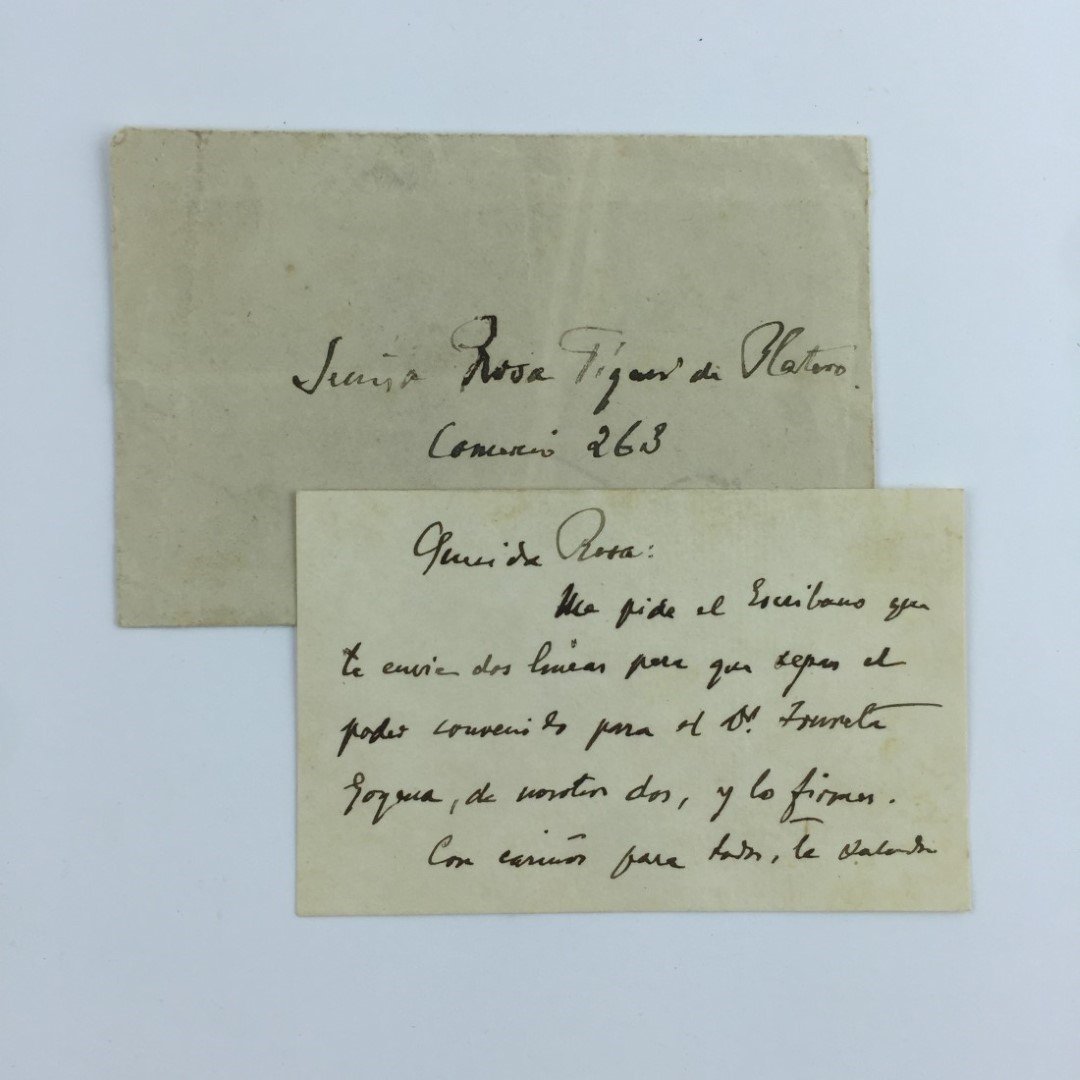 Señora Rosa Figari de Platero.
Comercio 263
Querida Rosa:
Me pide el Escribano que
te envíe dos líneas para que sepas el
poder convenido para el Dr. Irureta
Goyena, de nosotros dos, y lo firmes.
Con cariños para todos, te saluda